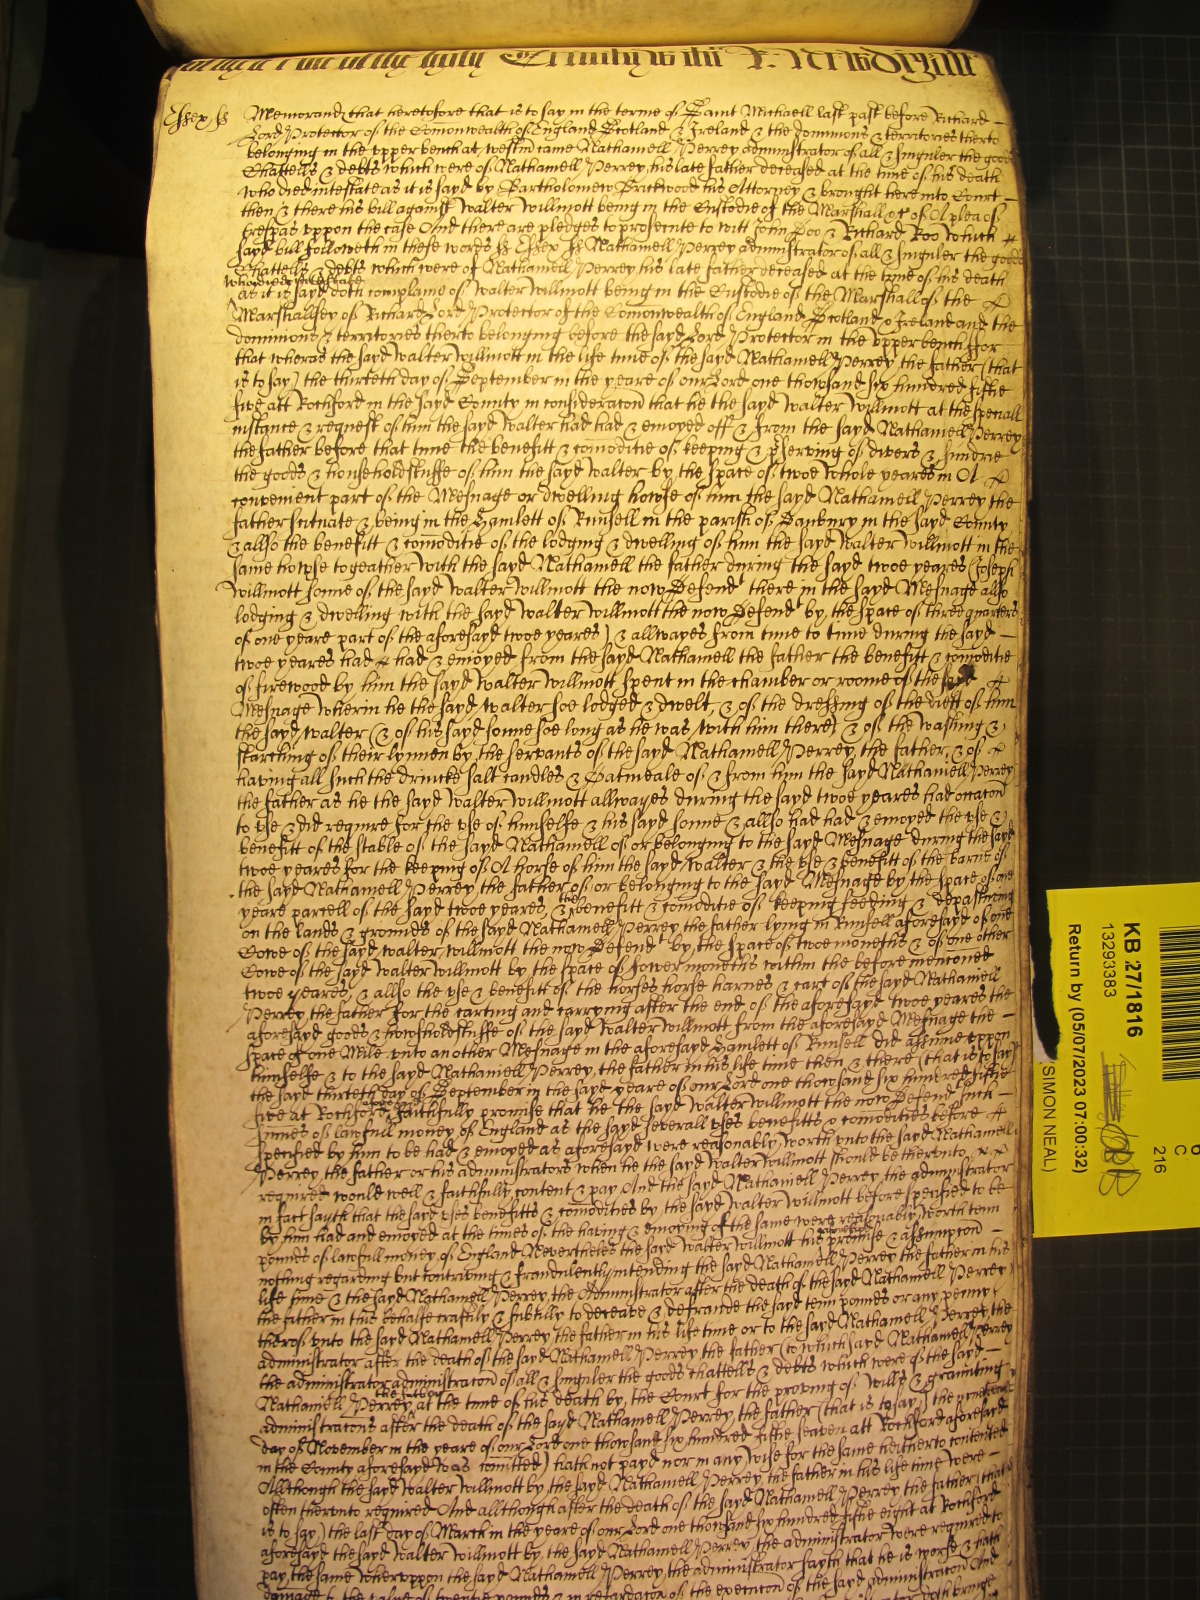 Essex ss Memorand that heretofore that is to say in the terme of Saint Michaell last past before Richard
Lord Protector of the Comonwealth of England Scotland & Ireland & the dominions & territories therto
belonging in the upper bench at westm came Nathaniell Perrey administrator of all & singuler the goods
Chattells & debts which were of Nathaniell Perrey his late father deceased at the time of his death
who died intestate as it is sayd by Bartholomew Brickwood his Attorney & brought here into Court
then & there his bill against Walter Willmott being in the Custodie of the Marshall &c of A plea of
trespas uppon the case And there are pledges to prosecute to witt John Doo & Richard Roo Which
sayd bill followeth in these words ss Essex ss Nathaniell Perrey administrator of all & singuler the goods
Chattells & debts which were of Nathaniell Perrey his late father deceased at the time of his death
who died intestate
as it is sayd doth complaine of walter willmott being in the Custodie of the Marshall of the
Marshallsey of Richard Lord Protector of the Comonwealth of England Scotland & Ireland and the
dominions & territories therto belonging before the sayd Lord Protector in the upper bench ffor
that wheras the sayd walter willmott in the life time of the sayd Nathaniell Perrey the father (that
is to say) the thirteth day of September in the yeare of our Lord one thowsand six hundred fiftie
five att Rochford in the sayd County in consideracon that he the sayd walter willmott at the speciall
instance & request of him the sayd walter had had & enioyed off & from the sayd Nathaniell Perrey
the father before that time the benefitt & comoditie of keeping & pserving of divers & sundrie
the goods & householdstuffe of him the sayd walter by the space of twoe whole yeares in A
convenient part of the Mesuage or dwelling howse of him the sayd Nathaniell Perrey the
father scituate & being in the Hamlett of Runsell in the parish of Danbury in the sayd County
& allso the benefitt & comoditie of the lodging & dwelling of him the sayd walter willmott in the
same howse togeather with the sayd Nathaniell the father during the sayd twoe yeares (Joseph
willmott sonne of the sayd walter willmott the now Defendt there in the sayd Mesuage also
lodging & dwelling with the sayd walter willmott the now Defendt by the space of three quarters
of one yeare part of the aforesayd twoe yeares) & allwayes from time to time during the sayd
twoe yeares had had & enioyed from the sayd Nathaniell the father the benefitt & comoditie
of firewood by him the sayd walter willmott spent in the chamber or roome of the sayd
Mesuage wherin he the sayd walter soe lodged & dwelt, & of the dressing of the diett of him
the sayd walter (& of his sayd sonne soe long as he was with him there) & of the washing &
starching of their lynnen by the servants of the sayd Nathaniell Perrey the father, & of
having all such the drincke salt candles & Oatmeale of & from him the sayd Nathaniell Perrey
the father as he the sayd walter willmott allwayes during the sayd twoe yeares had occacon
to use & did require for the use of himselfe & his sayd sonne & allso had had & enioyed the use &
benefitt of the stable of the sayd Nathaniell of or belonging to the sayd Mesuage during the sayd
twoe yeares for the keeping of A horse of him the sayd walter & the use & benefitt of the barne of
the sayd Nathaniell Perrey the father of or belonging to the sayd Mesuage by the space of one
yeare parcell of the sayd twoe yeares, & the benefitt & comoditie of keeping feeding & depasturing
on the lands & grounds of the sayd Nathaniell Perrey the father lying in Runsell aforesayd of one
Cowe of the sayd walter willmott the now Defendt by the space of twoe moneths & of one other
Cowe of the sayd walter willmott by the space of fower moneths within the before mencioned
twoe yeares, & allso the use & benefitt of the horses horse harnes & cart of the sayd Nathaniell
Perrey the father for the carting and carrying after the end of the aforesayd twoe yeares the
aforesayd goods & howsholdstuffe of the sayd walter willmott from the aforesayd Mesuage the
space of one Mile unto another Mesuage in the aforesayd Hamlett of Runsell did assume uppon
himselfe & to the sayd Nathaniell Perrey the father in his life time then & there (that is to say)
the sayd thirteth day of September in the sayd yeare of our Lord one thowsand six hundred fiftie
five at Rochford aforesayd faithfully promise that he the sayd walter willmott the now Defendt such
summes of lawfull money of England as the sayd severall uses benefitts & comodities before
specified by him to be had & enioyed as aforesayd were reasonably worth unto the sayd Nathaniell
Perrey the father or his administrators when he the sayd walter willmott should be therunto
required would well & faithfully content & pay And the sayd Nathaniell Perrey the administrator
in fact sayth that the sayd uses benefitts & comodities by the sayd walter willmott before specified to be
by him had and enioyed at the times of the having & enioying of the same were reasonably worth tenn
pounds of lawfull money of England Neverthelesse the sayd walter willmott his promise & assumpcon
nothing regarding but contriving & fraudulently intending the sayd Nathaniell Perrey the father in his
life time & the sayd Nathaniell Perrey the Administrator after the death of the sayd Nathaniell Perrey
the father in this behalfe craftily & subtilly to deceave & defraude the sayd tenn pounds or any penny
therof unto the sayd Nathaniell Perrey the father in his life time or to the sayd Nathaniell Perrey the
administrator after the death of the sayd Nathaniell Perrey the father (to which sayd Nathaniell Perrey
the administrator administracon of all & singuler the goods chattells & debts which were of the sayd
Nathaniell Perrey the father at the time of his death by the Court for the proving of wills & graunting
administracons after the death of the sayd Nathaniell Perrey the father (that is to say) the
day of November in the yeare of our Lord one thowsand six hundred fiftie seaven att Rochford aforesayd
in the County aforesayd was comitted) hath not payd nor in any wise for the same hitherto contented
Allthough the sayd walter willmott by the sayd Nathaniell Perrey the father in his life time were
often therunto required And allthough after the death of the sayd Nathaniell Perrey the father (that
is to say) the last day of March in the yeare of our Lord one thowsand six hundred fiftie eight at Rochford
aforesayd the sayd walter willmott by the sayd Nathaniell Perrey the administrator were required to
pay the same wheruppon the sayd Nathaniell Perrey the administrator sayth that he is worse & hath
damage to the value of twenty pounds & in retardacon of the execucon of the sayd administracon And
KB 27/1816
13293383
Return by (05/07/2023 07:00:32)
(SIMON NEAL)
216
C